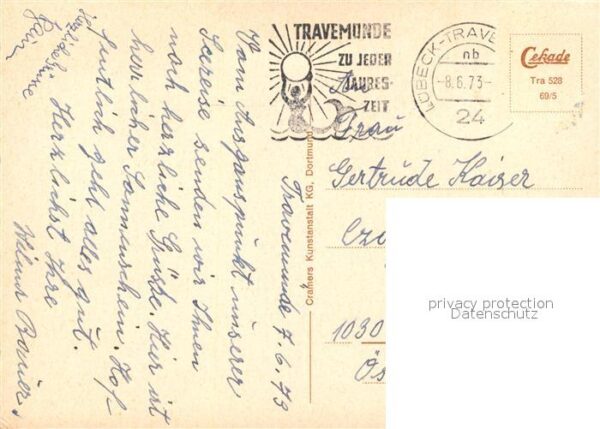 TRAVEMÜNDE
ZU JEDER
JAHRES-
ZEIT
LÜBECK-TRAVE
nb
-8.6.73-
24
Cekade
Tra 528
69/5
An
Frau
Gertrude Kaiser
1030
Ös
privacy protection
Datenschutz
Cramers Kunstanstalt KG, Dortmund
Travemünde 7.6.73
Vom Ausgangspunkt unserer
Seereise senden wir Ihnen
noch herzliche Grüsse. Hier ist
herrlicher Sonnenschein. Hof-
fentlich geht alles gut.
Herzlichst Ihre
Wilma Bauer.